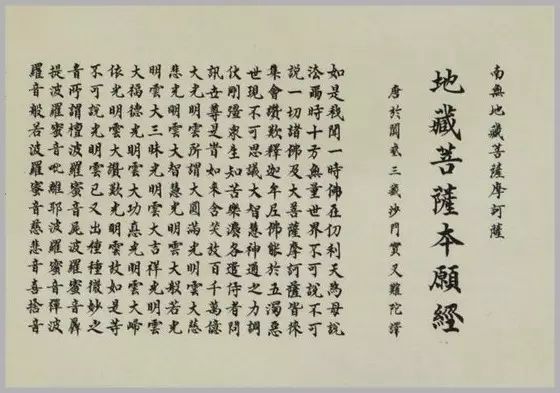 南無地藏菩薩摩訶薩
地藏菩薩本願經
唐於闐國三藏沙門實叉難陀譯
如是我聞一時佛在忉利天為母說
法爾時十方無量世界不可說不可
說一切諸佛及大菩薩摩訶薩皆來
集會讚歎釋迦牟尼佛能於五濁惡
世現不可思議大智慧神通之力調
伏剛彊衆生知苦樂法各遣侍者問
訊世尊是時如來含笑放百千萬億
大光明雲所謂大圓滿光明雲大慈
悲光明雲大智慧光明雲大般若光
明雲大三昧光明雲大吉祥光明雲
大福德光明雲大功德光明雲大歸
依光明雲大讚歎光明雲放如是等
不可說光明雲已又出種種微妙之
音所謂檀波羅蜜音尸波羅蜜音羼
提波羅蜜音毗離耶波羅蜜音禪波
羅音般若波羅蜜音慈悲音喜捨音